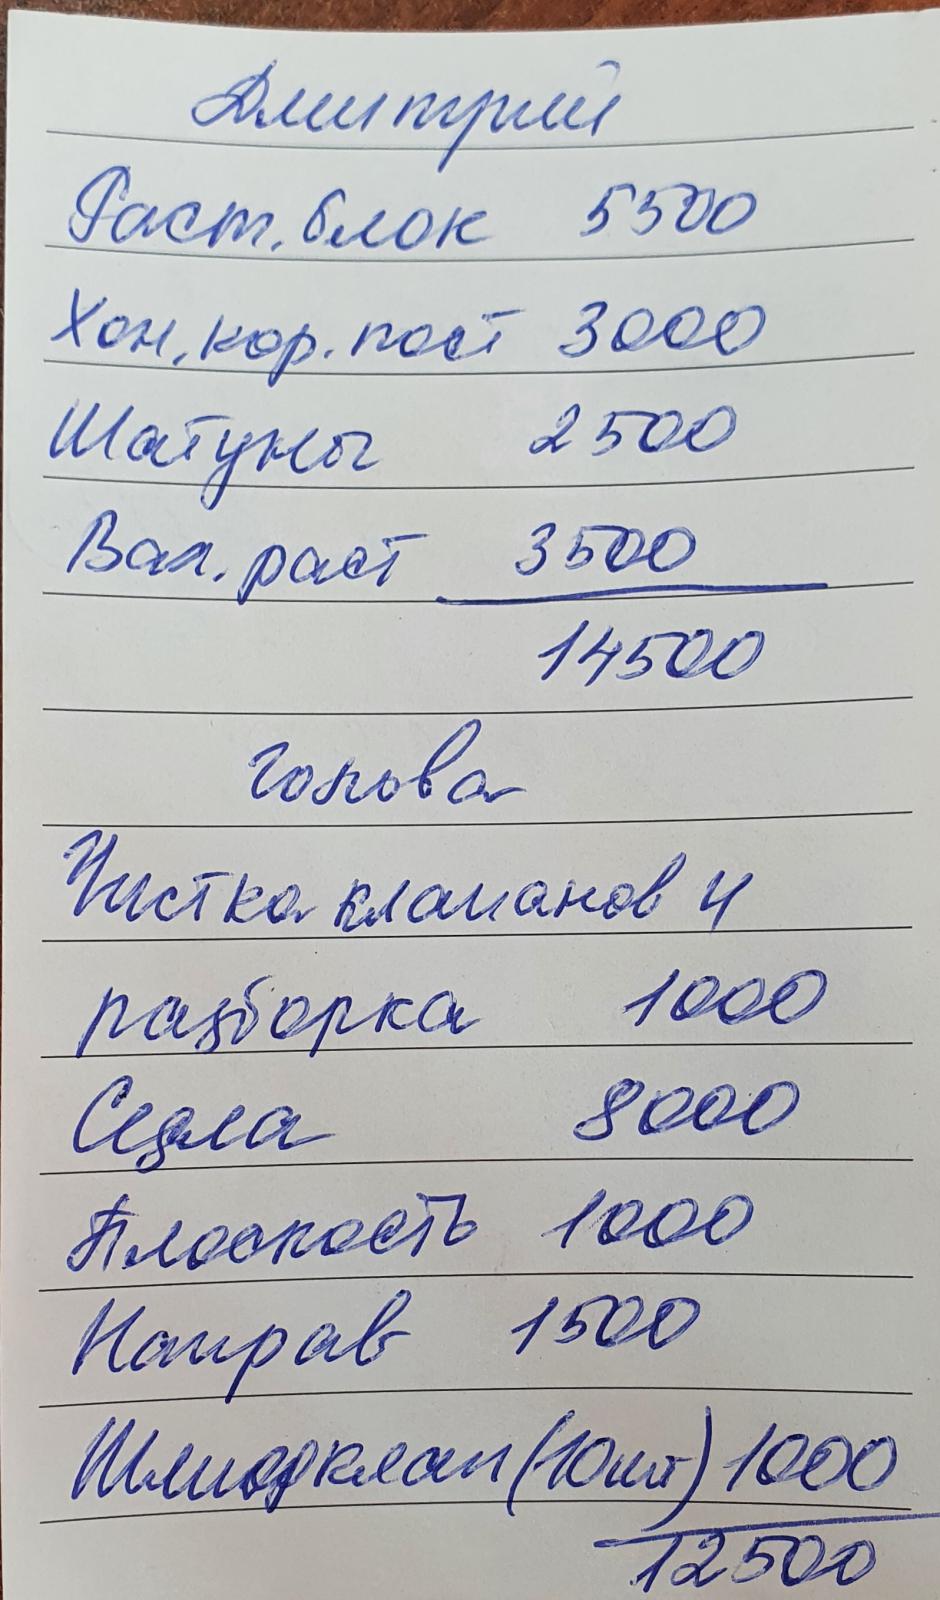 Дмитрий
Раст. блок 5500
Хон. кор. пост 3000
Шатуны 2500
Вал. раст 3500
14500
голова
Чистка клапанов и
разборка 1000
Седла 8000
Плоскость 1000
Направ 1500
клап (10шт) 1000
12500